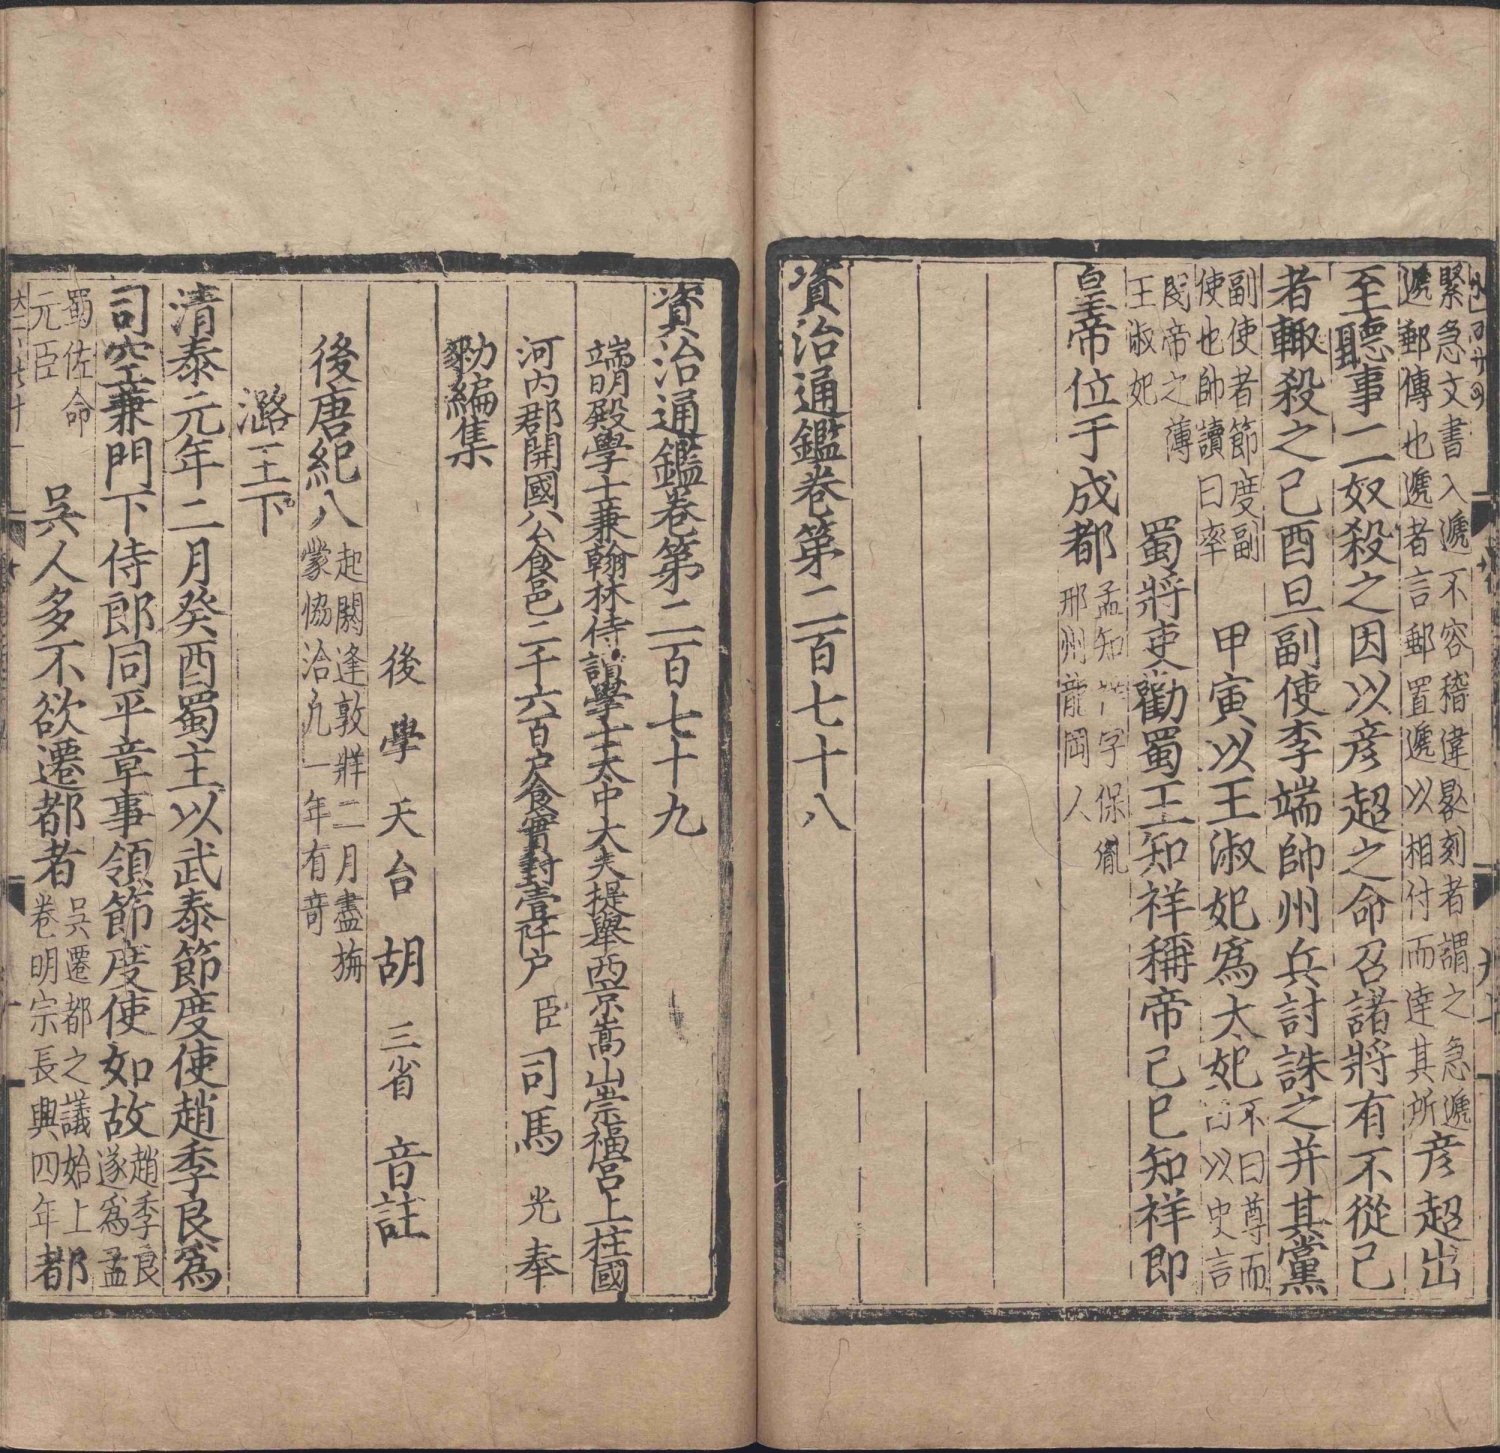 緊急文書入遞不容稽違晷刻者謂之急遞
遞郵傳也遞者言郵置遞以相付而達其所
彦超出
至聽事二奴殺之因以彦超之命召諸將有不從已
者輙殺之己酉旦副使李端帥州兵討誅之并其黨
副使者節度副
使也帥讀曰率
甲寅以王淑妃爲太妃
不曰尊而
曰以史言
閔帝之薄
王淑妃
蜀將吏勸蜀王知祥稱帝己巳知祥即
皇帝位于成都
孟知祥字保胤
邢州龍岡人
資治通鑑卷第二百七十八
資治通鑑卷第二百七十九
端明殿學士兼翰林侍讀學士太中大夫提舉西京嵩山崇福宮上柱國
河内郡開國公食邑二千六百户食實封壹阡户臣司馬光奉
勑編集
後學天台胡三省音註
後唐紀八
起閼逢敦牂二月盡旃
蒙協洽凡一年有奇
潞王下
清泰元年二月癸酉蜀主以武泰節度使趙季良爲
司空兼門下侍郎同平章事領節度使如故
趙季良
遂爲孟
蜀佐命
元臣
吳人多不欲遷都者
吳遷都之議始上
卷明宗長興四年
都